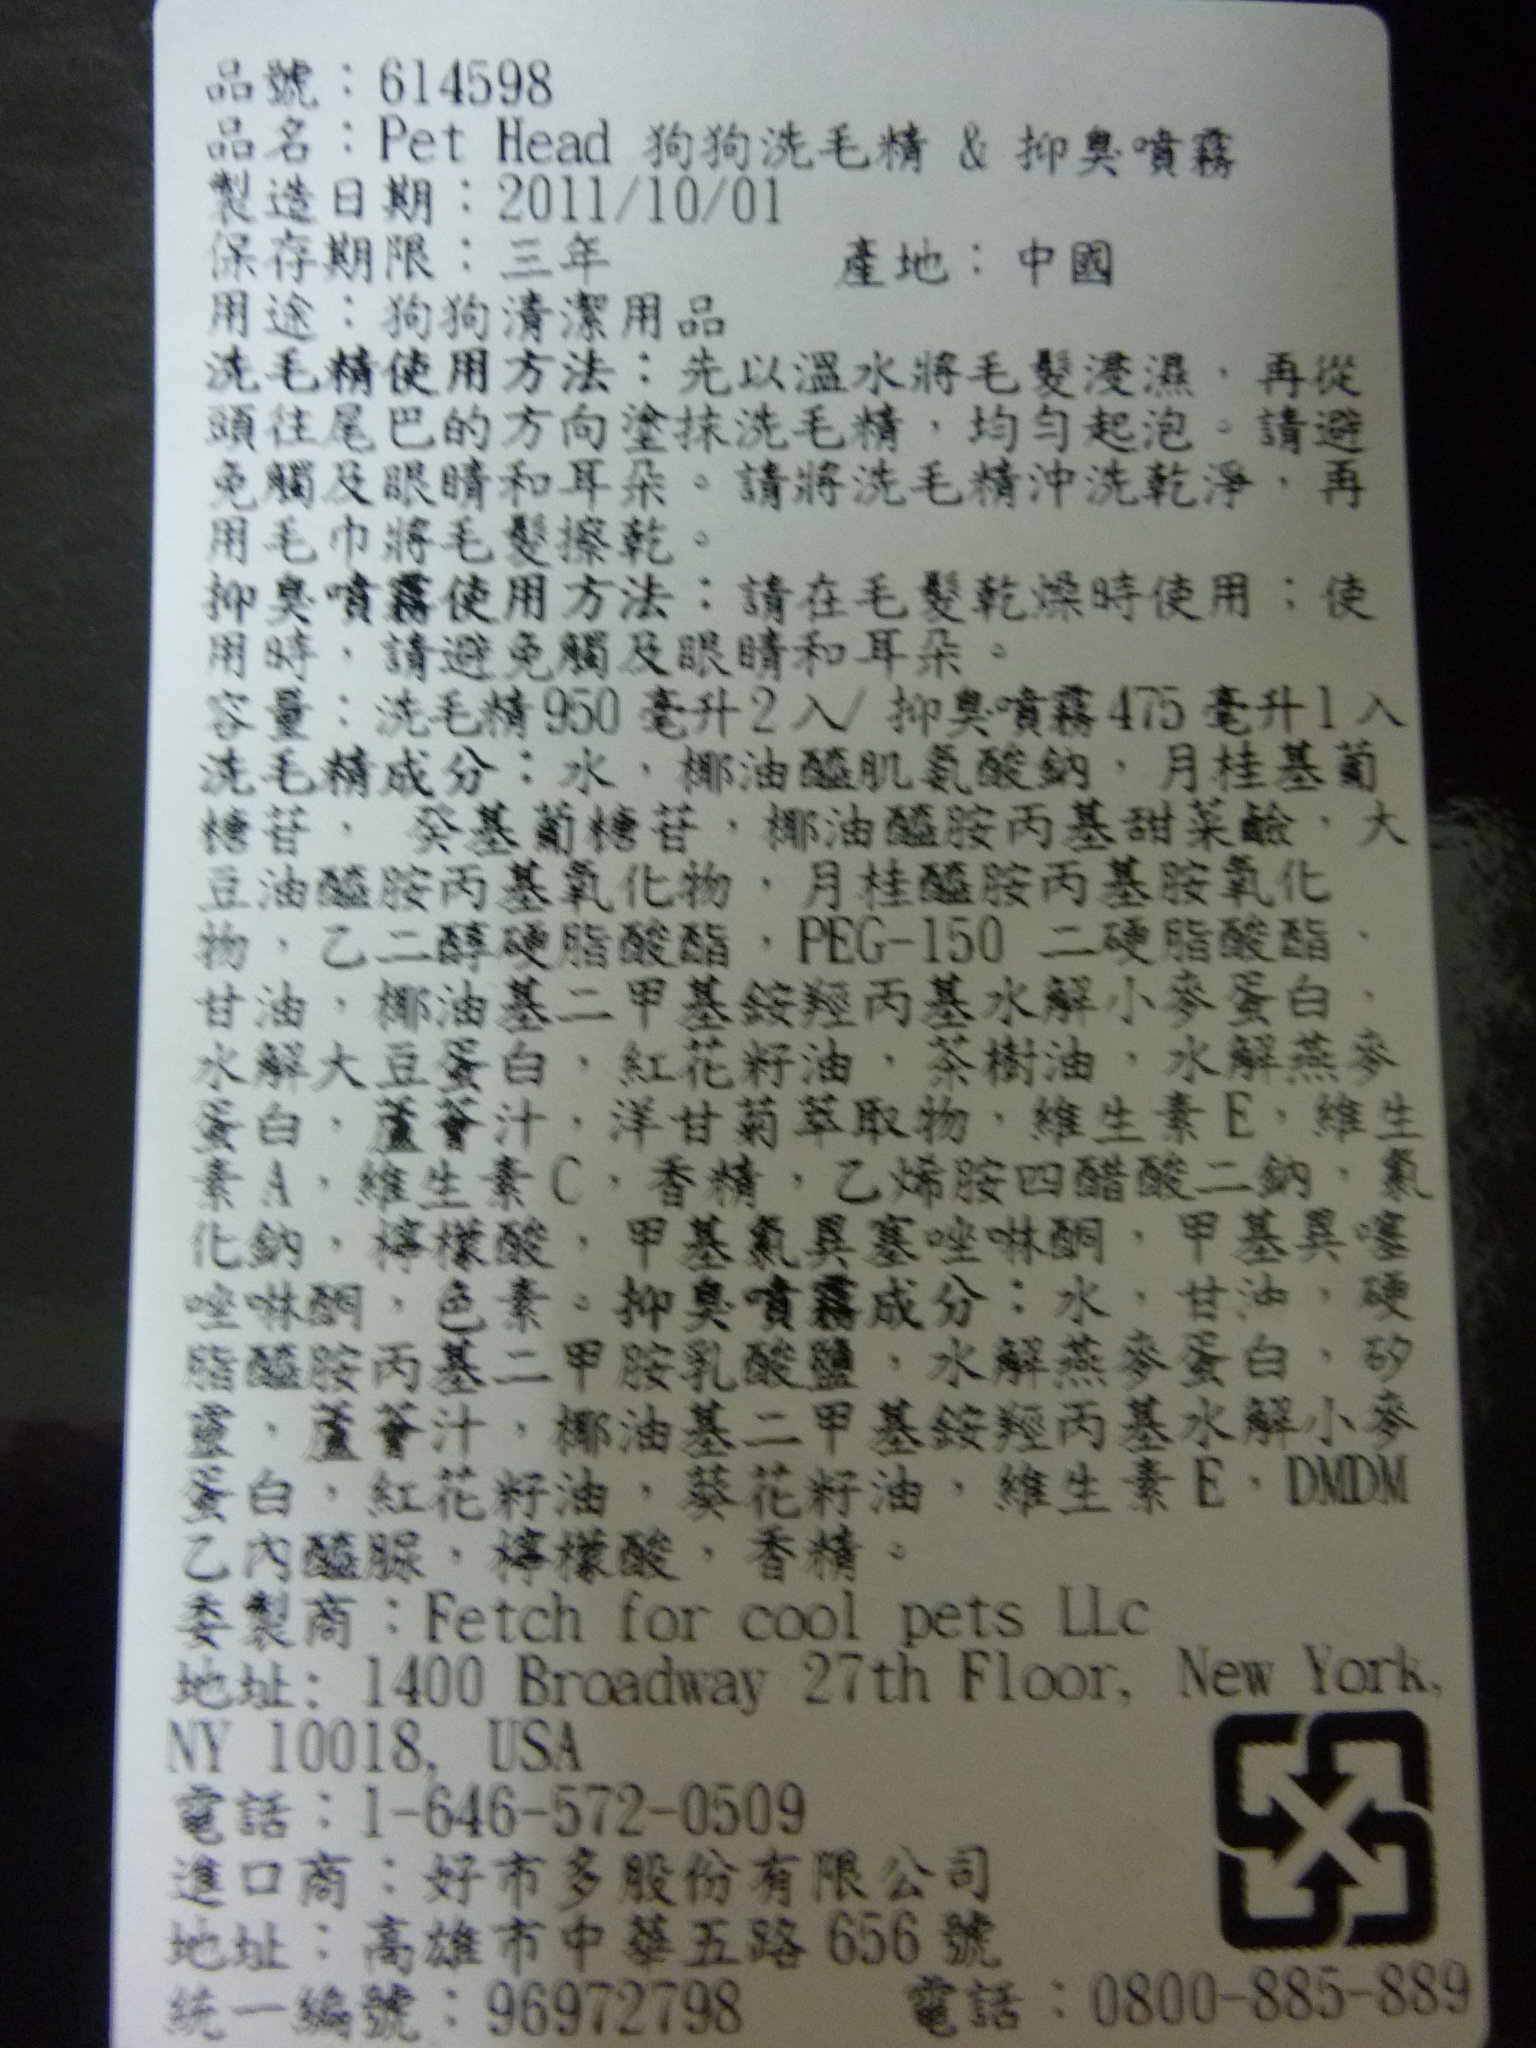 品號：614598
品名：Pet Head 狗狗洗毛精 & 抑臭噴霧
製造日期：2011/10/01
保存期限：三年 產地：中國
用途：狗狗清潔用品
洗毛精使用方法：先以溫水將毛髮浸濕，再從
頭往尾巴的方向塗抹洗毛精，均勻起泡。請避
免觸及眼睛和耳朵。請將洗毛精沖洗乾淨，再
用毛巾將毛髮擦乾。
抑臭噴霧使用方法：請在毛髮乾燥時使用；使
用時，請避免觸及眼睛和耳朵。
容量：洗毛精950 毫升2入/ 抑臭噴霧475 毫升1入
洗毛精成分：水，椰油醯肌氨酸鈉，月桂基葡
糖苷， 癸基葡糖苷，椰油醯胺丙基甜菜鹼，大
豆油醯胺丙基氧化物，月桂醯胺丙基胺氧化
物，乙二醇硬脂酸酯，PEG-150 二硬脂酸酯，
甘油，椰油基二甲基銨羥丙基水解小麥蛋白，
水解大豆蛋白，紅花籽油，茶樹油，水解燕麥
蛋白，蘆薈汁，洋甘菊萃取物，維生素E，維生
素A，維生素C，香精，乙烯胺四醋酸二鈉，氯
化鈉，檸檬酸，甲基氯異塞唑啉酮，甲基異噻
唑啉酮，色素。抑臭噴霧成分：水，甘油，硬
脂醯胺丙基二甲胺乳酸鹽，水解燕麥蛋白，矽
靈，蘆薈汁，椰油基二甲基銨羥丙基水解小麥
蛋白，紅花籽油，葵花籽油，維生素E，DMDM
乙內醯脲，檸檬酸，香精。
委製商：Fetch for cool pets LLc
地址: 1400 Broadway 27th Floor, New York,
NY 10018, USA
電話：1-646-572-0509
進口商：好市多股份有限公司
地址：高雄市中華五路 656 號
統一編號：96972798 電話：0800-885-889